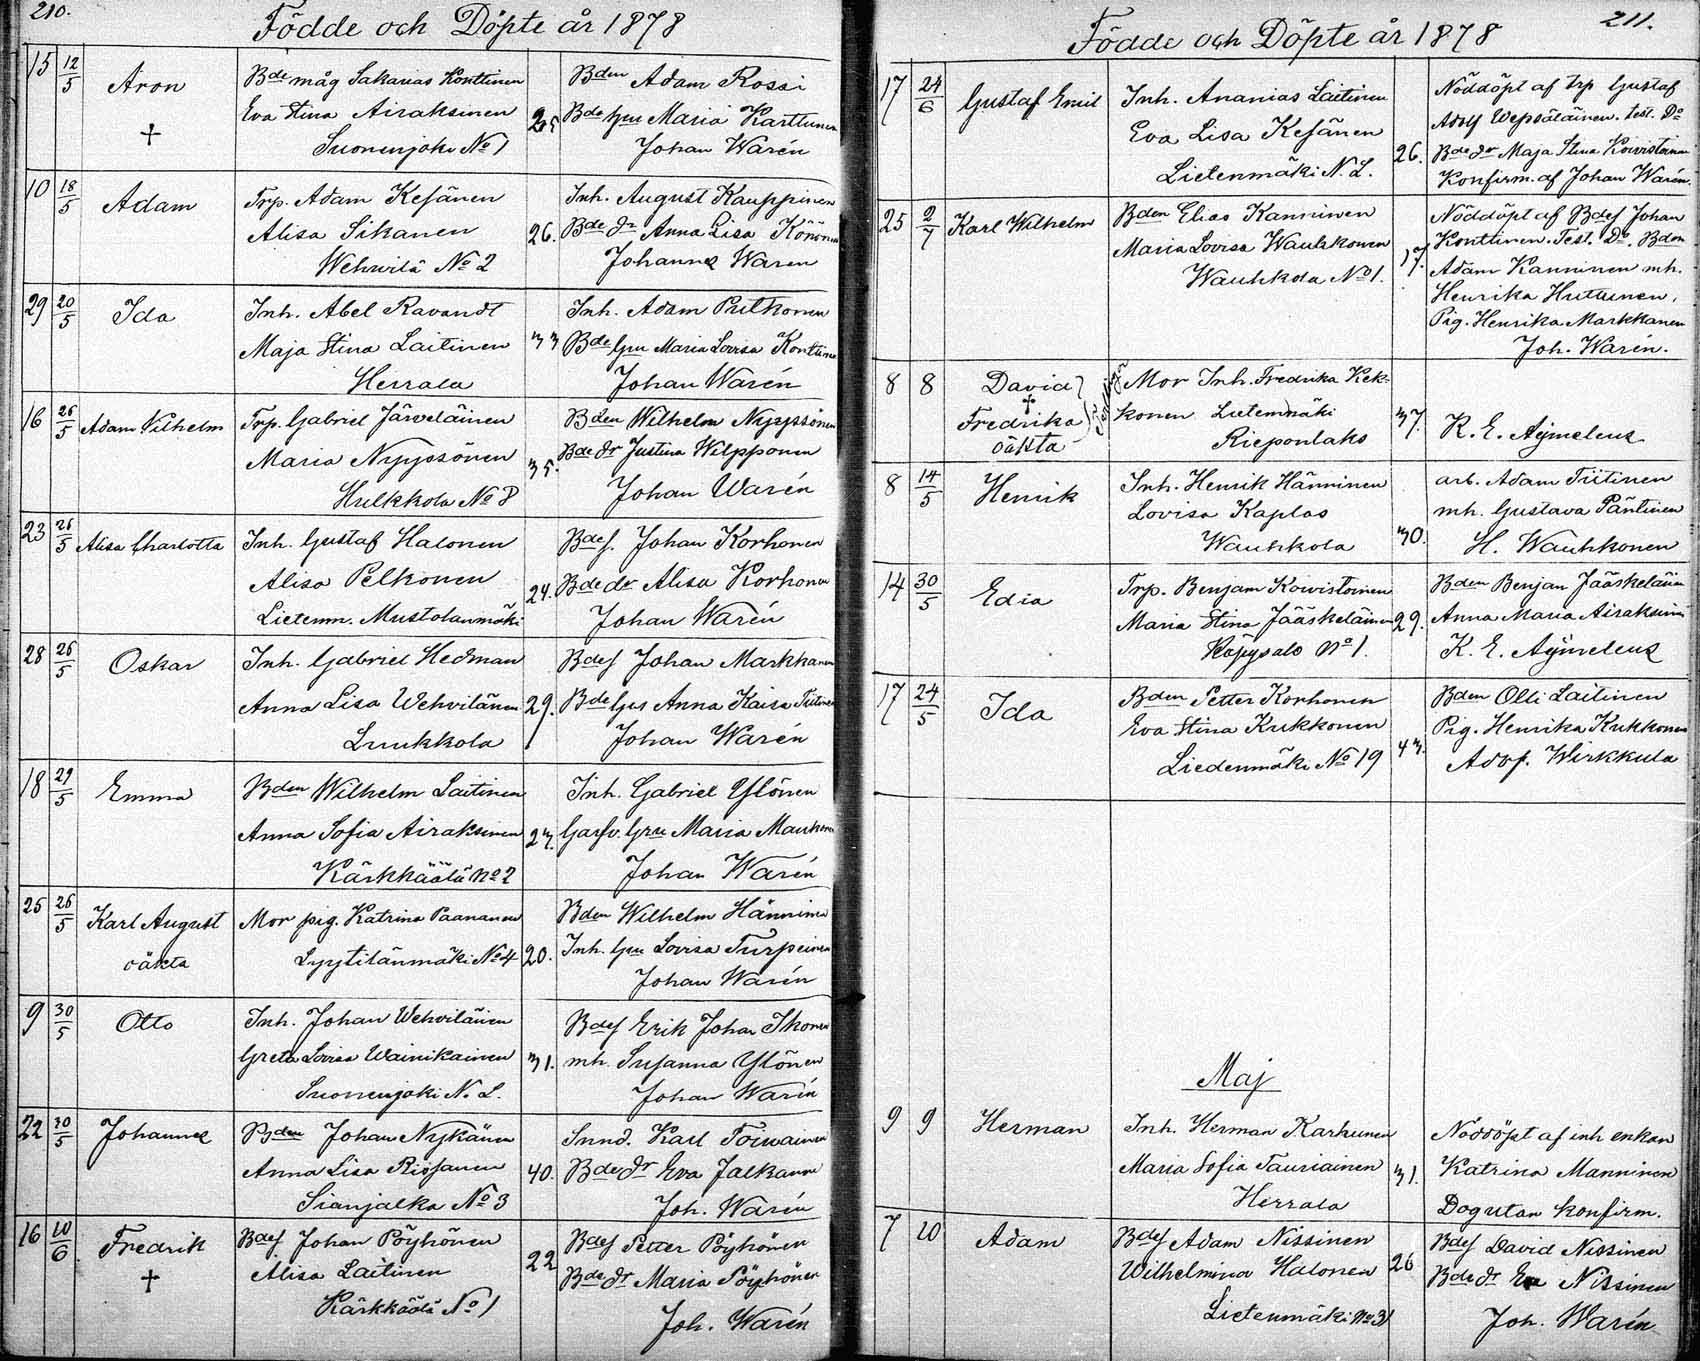 210.
Födde och Döpte år 1878
15 12/5 Aron Bde måg Sakarias Konttinen Bden Adam Rossi
Eva Stina Airaksinen 25 Bde hru Maria Karttunen
✝ Suonenjoki No 1 Johan Warén
10 18/5 Adam Trp. Adam Kesänen Inh. August Kauppinen
Alisa Sikanen 26. Bde dr Anna Lisa Könönen
Wehvilä No 2 Johannes Waren
29 20/5 Ida Inh. Abel Ravandt Inh. Adam Pulkonen
Maja Stina Laitinen 33 Bde hru Maria Lovisa Konttinen
Herrala Johan Warén
16 26/5 Adam Vilhelm Trp. Gabriel Järveläinen Bden Wilhelm Nyyssönen
Maria Nyyssönen 35. Bde dr Justina Wilpponen
Hulkkola No 8 Johan Warén
23 26/5 Alisa Charlotta Inh. Gustaf Halonen Bdes. Johan Korhonen
Alisa Pelkonen 24. Bde dr Alisa Korhonen
Lietemn. Mustolanmäki Johan Warén
28 26/5 Oskar Inh. Gabriel Hedman Bdes Johan Markkanen
Anna Lisa Wehvilänen 29. Bde hru Anna Kaisa Tiitinen
Luukkola Johan Warén
18 29/5 Emma Bden Wilhelm Laitinen Inh. Gabriel Ylönen
Anna Sofia Airaksinen 23. Maria
Kärkkäälä No 2 Johan Warén
25 26/5 Karl August Mor pig. Katrina Paananen Bden Wilhelm Hänninen
oäkta Lyytilänmäki No 4 20. Inh. hru Lovisa Turpeinen
Johan Warén
9 30/5 Otto Inh. Johan Wehviläinen Bdes Erik Johan Ikonen
Greta Lovisa Wainikainen 31. mh. Susanna Ylönen
Suonenjoki N. L. Johan Warén
22 30/5 Johannes Bden Johan Nykänen Karl Toivainen
Anna Lisa Riosanen 40. Bde dr Eva Jalkanen
Sianjalka No 3 Joh. Warén
16 10/6 Fredrik Bdes. Johan Pöyhönen Bdes Petter Pöyhönen
✝ Alisa Laitinen 22 Bde dr Maria Pöyhönen
Kärkkäälä No 1 Joh. Warén
211.
Födde och Döpte år 1878
17 24/6 Gustaf Emil Inh. Ananias Laitinen Nöddöpt af trp Gustaf
Eva Lisa Kesänen Adolf Wepsäläinen. test. Do
26. Bde dr Maja Stina Koivistoinen
Lietenmäki N. L. Konfirm. af Johan Warén.
25 2/7 Karl Wilhelm Bden Elias Kanninen Nöddöpt af Bdes Johan
Maria Lovisa Wauhkonen 37. Konttinen. Test. Do. Bden
Wauhkola No 1. Adam Kanninen mh.
Henrika Huttunen,
Pig. Henrika Markkanen
Joh. Warén.
8 8 David Tvillingar Mor Inh. Fredrika Kek-
✝ Fredrika konen Lietemnäki 37.
oäkta Rieponlaks K. E. Aýmeleus
8 14/5 Henrik Inh. Henrik Hänninen arb. Adam Tiitinen
Lovisa Kaplas mh. Gustava Päntinen
Wauhkola 30. H. Wauhkonen
14 30/5 Edia Trp. Benjam Koivistoinen Bden Benjan Jääskeläinen
Maria Stina Jääskeläinen 29. Anna Maria Airaksinen
Käpysalo No 1. K. E. Aýmeleus
17 24/5 Ida Bden Petter Korhonen Bden Olli Laitinen
Eva Stina Kukkonen 43. Pig. Henrika Kukkonen
Liedenmäki No 19 Adof. Wirkkula
Maj
9 9 Herman Inh. Herman Karhunen Nöddöpt af inh enkan
Maria Sofia Tauriainen 31. Katrina Manninen
Herrala Dog utan konfirm.
7 20 Adam Bdes Adam Nissinen Bdes David Nissinen
Wilhelmina Halonen 26 Bde dr Eva Nissinen
Lietenmäki No 31 Joh. Warén